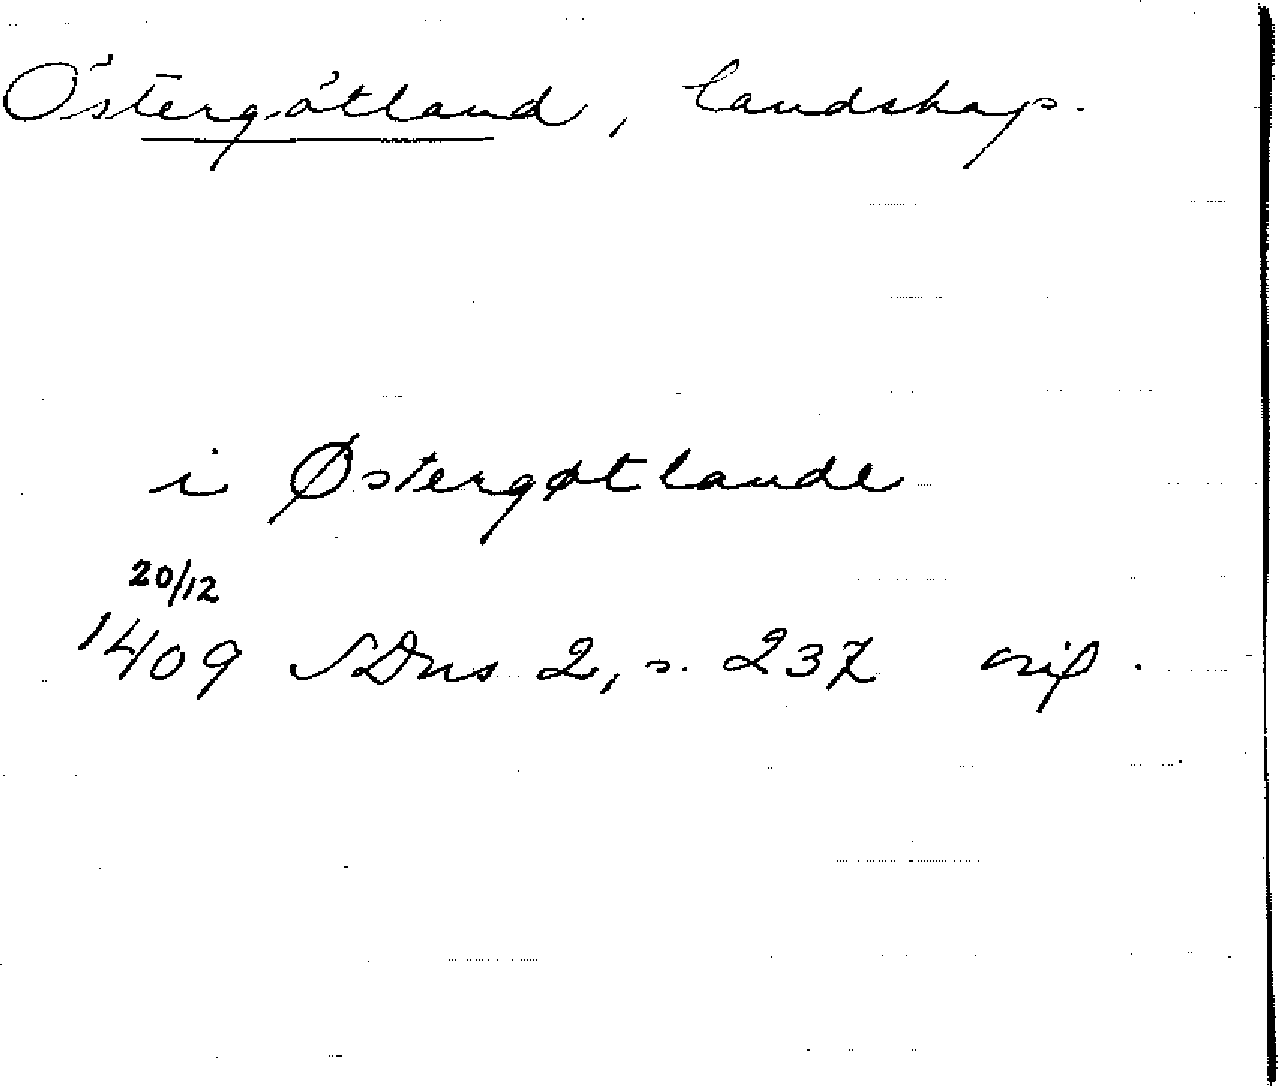 Östergötland, landskap.
i Østergøtlande
20/12
1409 SDns 2, s. 237 orig.